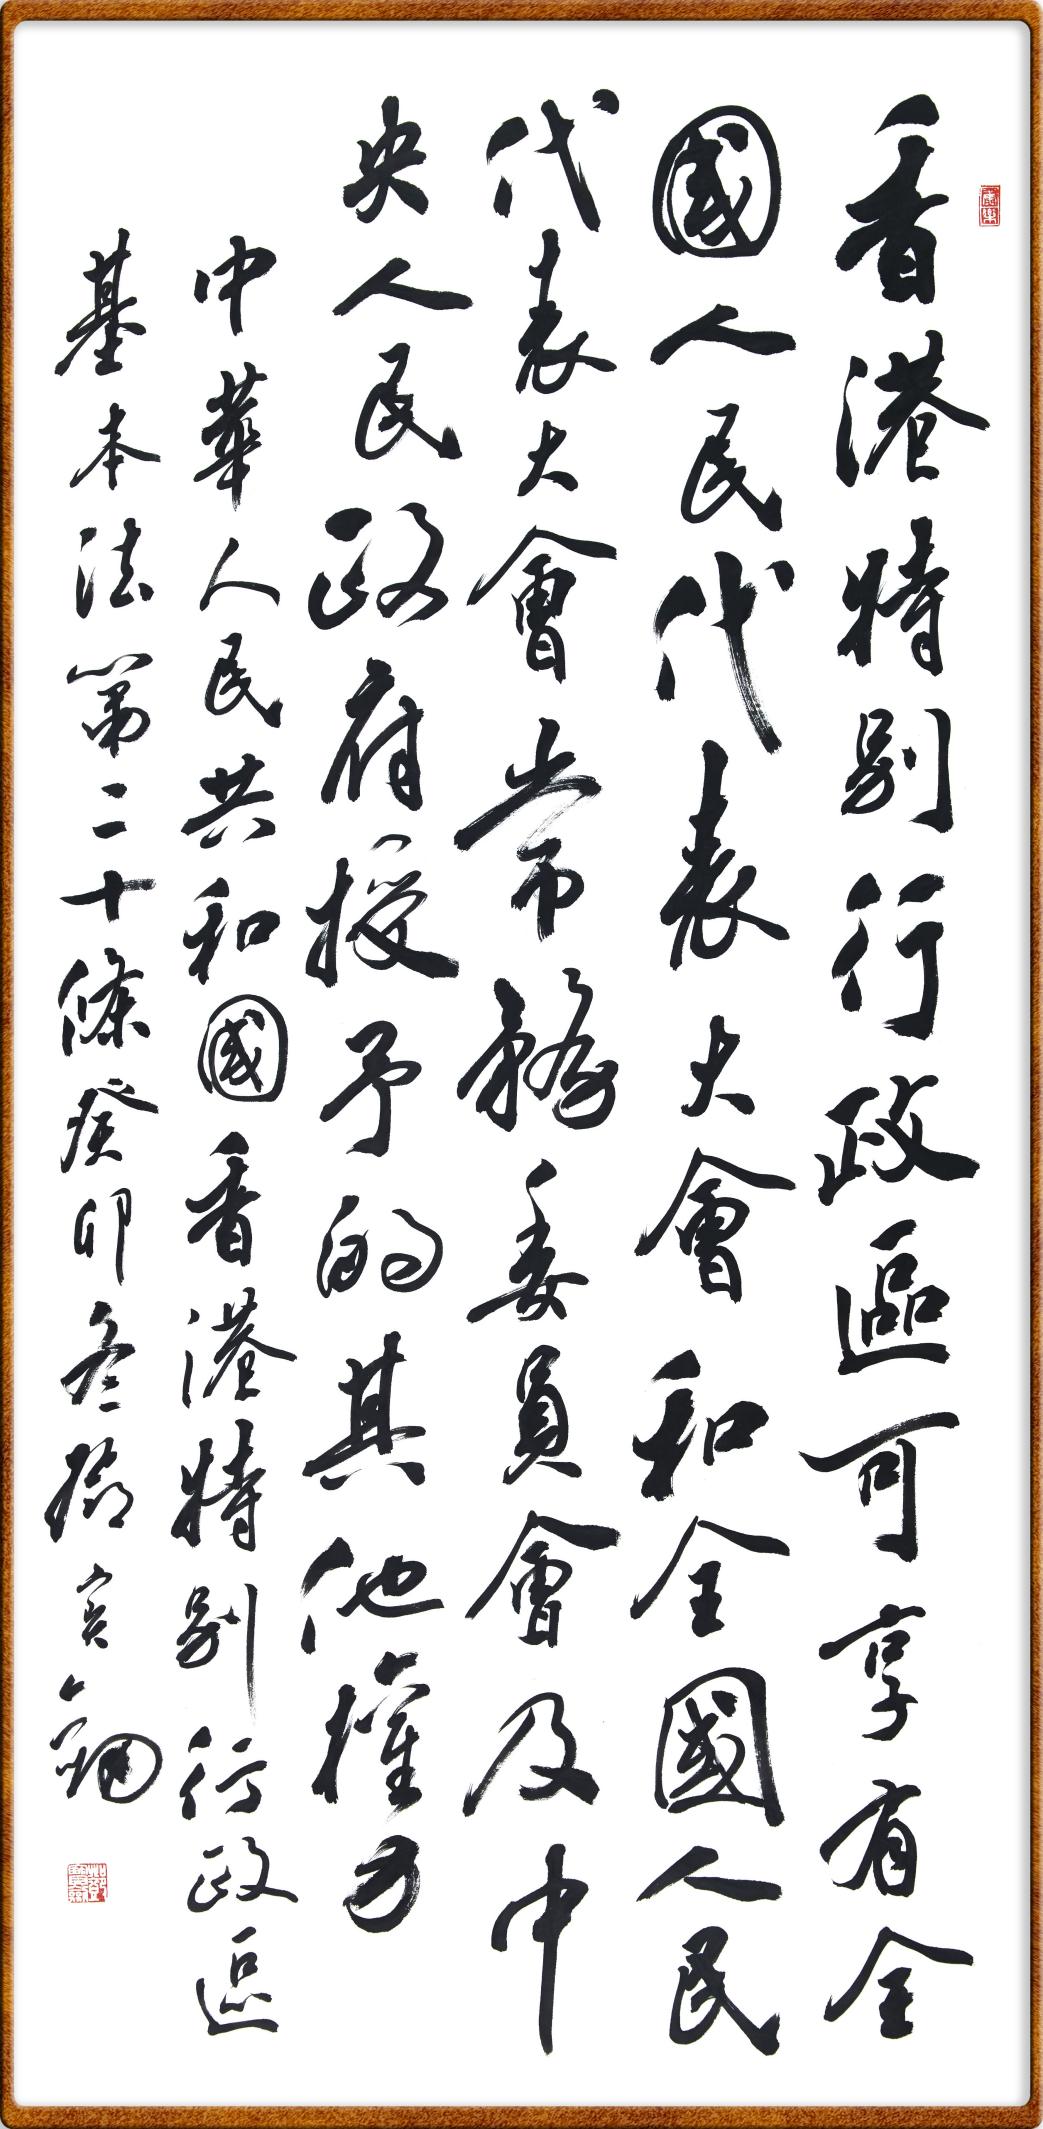 香港特別行政區可享有全
國人民代表大會和全國人民
代表大會常務委員會及中
央人民政府授予的其他權力
中華人民共和國香港特別行政區
基本法第二十條癸卯冬鄧寶劍